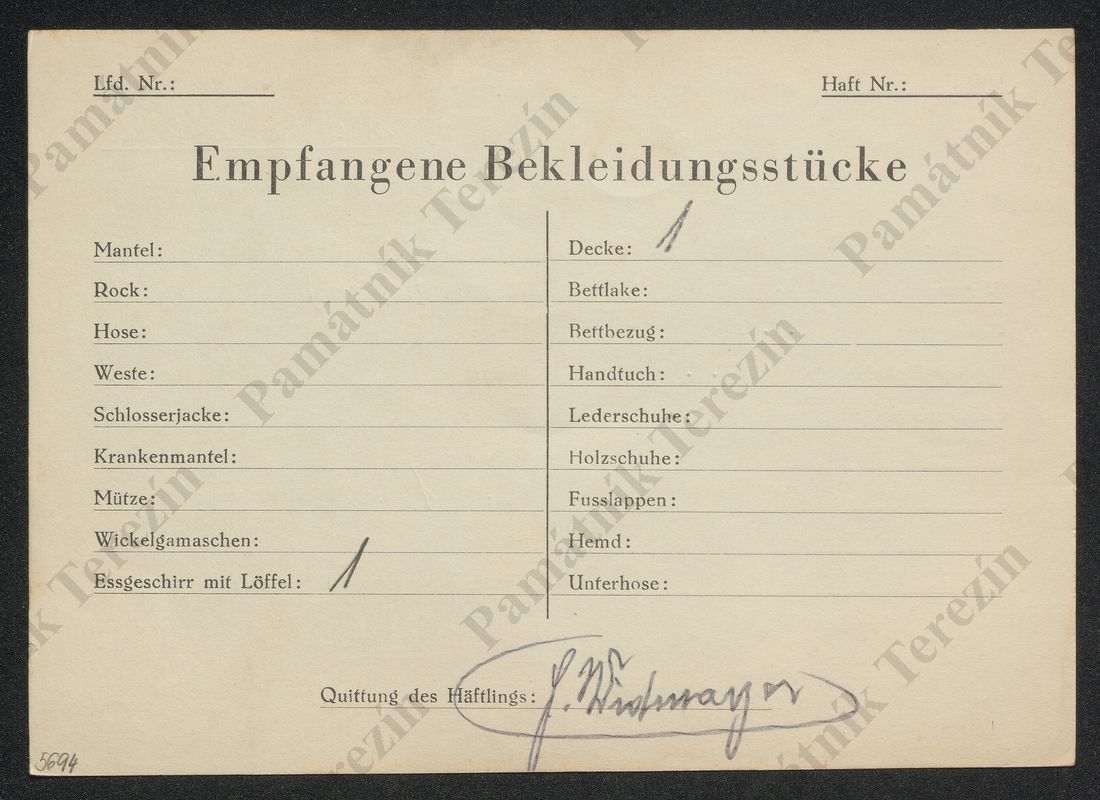 Lfd. Nr.:
Haft Nr.:
Empfangene Bekleidungsstücke
Mantel:
Rock:
Hose:
Weste:
Schlosserjacke:
Krankenmantel:
Mütze:
Wickelgamaschen:
Essgeschirr mit Löffel: 1
Decke: 1
Bettlake:
Bettbezug:
Handtuch:
Lederschuhe:
Holzschuhe:
Fusslappen:
Hemd:
Unterhose:
Quittung des Häftlings:
5694
Památník Terezín
Památník Terezín
Památník Terezín
Památník Terezín